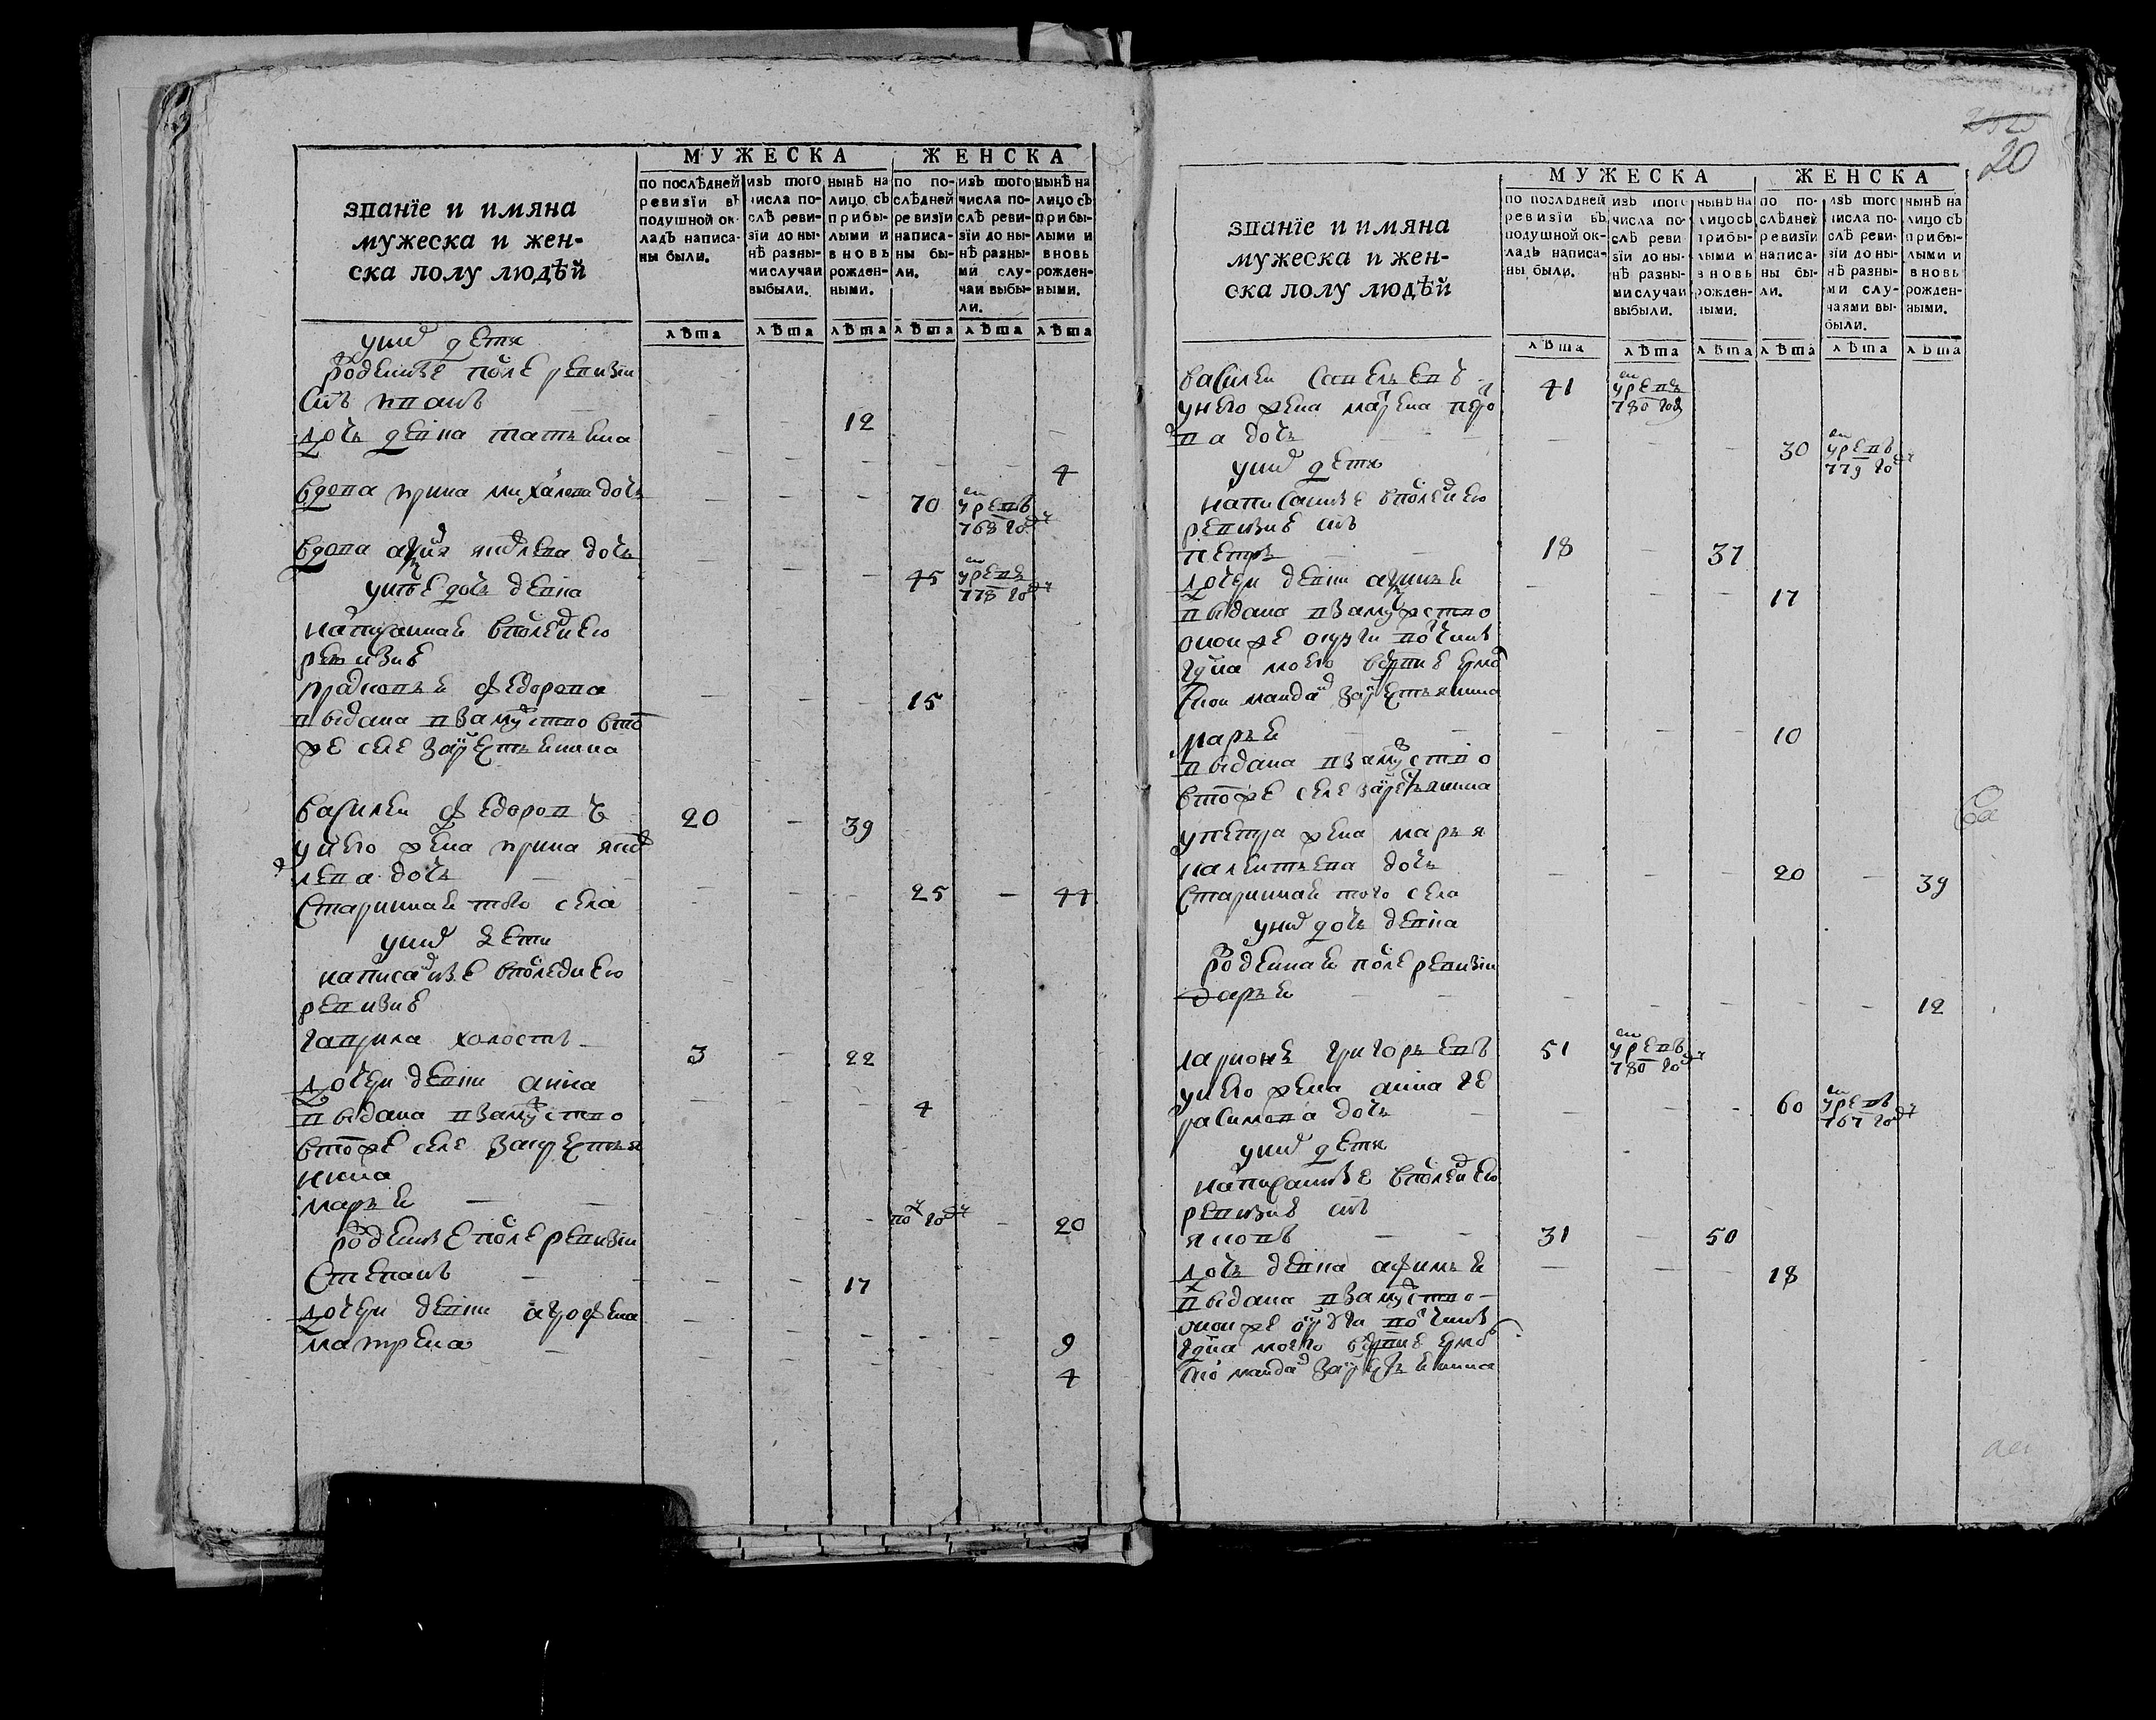 МУЖЕСКА ЖЕНСКА
званїе и имяна
мужеска и жен-
ска полу людѣй
по послѣдней
ревизїи въ
подушной ок-
ладъ написа-
ны были.
изъ того
числа по-
слѣ реви-
зїи до ны-
нѣ разны-
ми случаи
выбыли.
нынѣ на
лицо съ
прибы-
лыми и
вновь
рожден-
ными.
по по-
слѣдней
ревизїи
написа-
ны бы-
ли.
изъ того
числа по-
слѣ реви-
зїи до ны-
нѣ разны-
ми слу-
чаи выбы-
ли.
нынѣ на
лицо съ
прибы-
лыми и
вновь
рожден-
ными.
лѣта лѣта лѣта лѣта лѣта лѣта
у них дети
рожденные после ревизiи
сынъ иванъ 12
дочь девка татьяна 4
вдова ирина михалева дочь 70 умре въ 768 году
вдова аксинья яковлева дочь 45 умре въ 778 году
у ней дочь девка
написанная в последнею
ревизие
прасковья федорова 15
выдана в замужство в том
же селе за крестьянина
василей федоровъ 20 - 39
у него жена ирина яков
лева дочь 25 - 44
старинная того села
у них дети
написанные в последнею
ревизие
гаврила холостъ 3 - 22
дочери девки анна 4
выдана в замужство
в том же селе за крестья
нина
марья полугоду - 20
рожденные после ревизiи
степанъ 17
дочери девки агрофена 9
матрена 4
20
МУЖЕСКА ЖЕНСКА
званїе и имяна
мужеска и жен-
ска полу людѣй
по послѣдней
ревизїи въ
подушной ок-
ладъ написа-
ны были.
изъ того
числа по-
слѣ реви-
зїи до ны-
нѣ разны-
ми случаи
выбыли.
нынѣ на
лицо съ
прибы-
лыми и
вновь
рожден-
ными.
по по-
слѣдней
ревизїи
написа-
ны бы-
ли.
изъ того
числа по-
слѣ реви-
зїи до ны-
нѣ разны-
ми слу-
чаями вы-
были.
нынѣ на
лицо съ
прибы-
лыми и
вновь
рожден-
ными.
лѣта лѣта лѣта лѣта лѣта лѣта
василей савельевъ 41 умре въ 780 году
у него жена марфа петро
ва дочь 30 умре въ 779 году
у них дети
написанные в последнею
ревизие сынъ
петръ 18 - 37
дочери девки аксинья 17
выдана в замужство
оной же округи вотчины
гдна моего
за крестьянина
марья 10
выдана в замужство
в том же селе за крестьянина
у петра жена марья
калентьева дочь 20 - 39
старинная того села
у них дочь девка
рожденная после ревизiи
дарья 12
ларионъ григорьевъ 51 умре въ 780 году
у него жена анна ге
расимова дочь 60 умре въ 767 году
у них дети
написанные в последнею
ревизие сынъ
яковъ 31 - 50
дочь девка афимья 18
выдана в замужство
оной же округи вотчины
гдна моего
за крестьянина